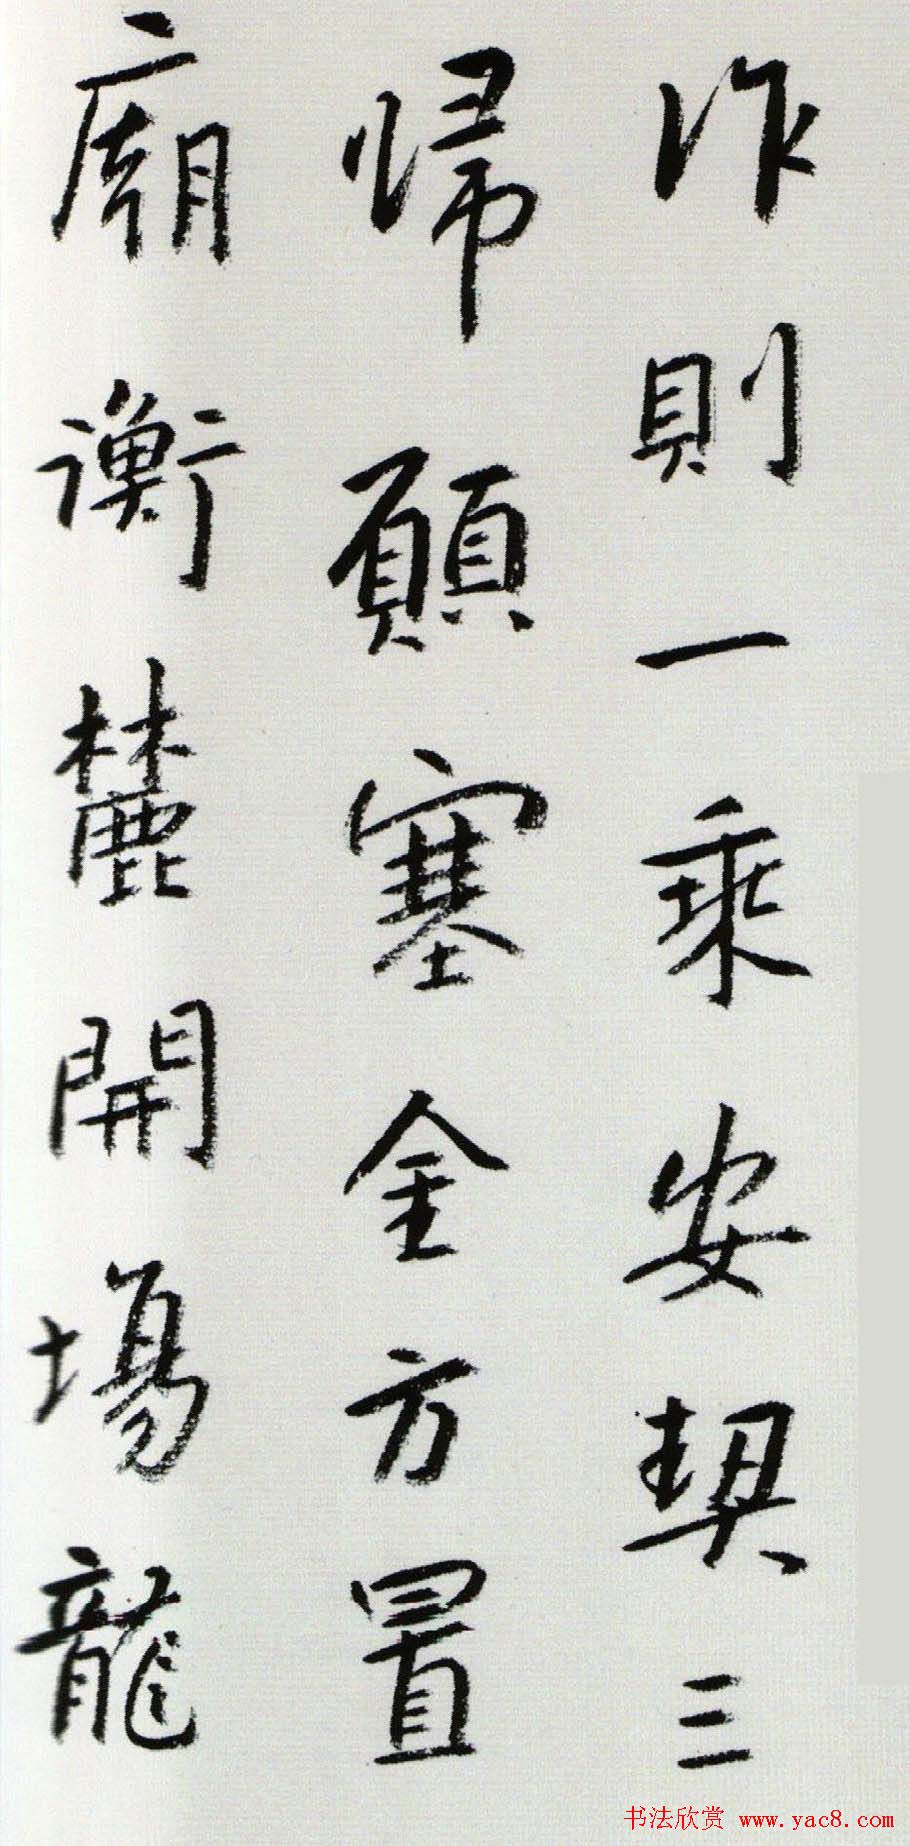 作則一乘安契三
歸願塞全方置
廟衡麓開場龍
书法欣赏 www.yac8.com